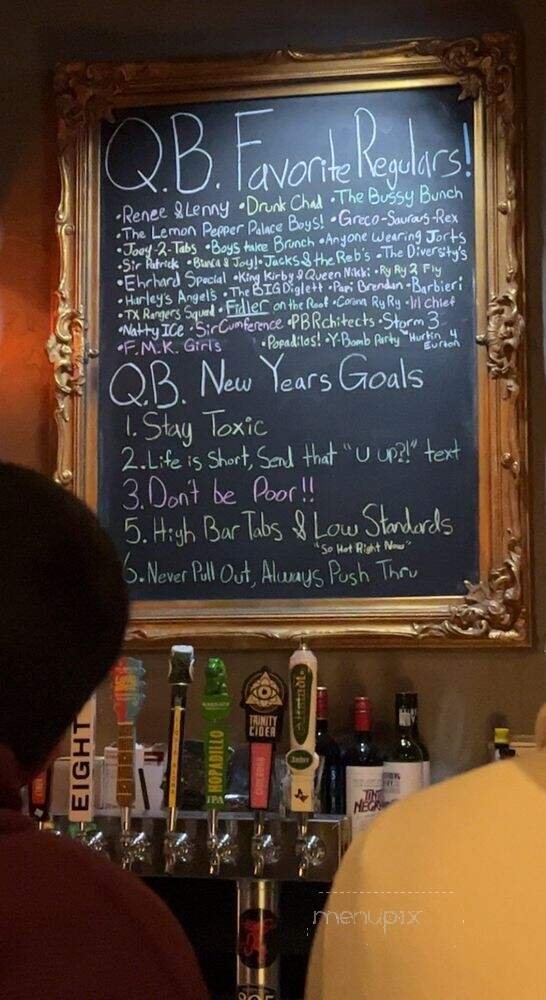 Q.B. Favorite Regulars!
•Renee & Lenny •Drunk Chad •The Bussy Bunch
•The Lemon Pepper Palace Boys! •Greco-Saurous-Rex
•Joey-2-Tabs •Boys take Brunch •Anyone wearing Jorts
•Sir Patrick •Bianca & Joy! •Jacks & the Reb's •The Diversity's
•Ehrhard Special •King Kirby & Queen Nikki •Ry Ry 2 Fly
•Hurley's Angel's •The BIG Diglett •Papi Brendan •Barbieri
•TX Rangers Squad •Fidler on the Roof •Corona RyRy •lil chief
•Natty Ice •Sir Cumference •PBRchitects •Storm 3
•F.M.K. Girls •Popadilos! •Y-Bomb Party •Hurtin 4
Q.B. New Years Goals
1. Stay Toxic
2. Life is Short, Send that "U up?!" text
3. Don't be Poor!!
5. High Bar Tabs & Low Standards
"So Hot Right Now"
6. Never Pull Out, Always Push Thru
EIGHT
HOPADILLO
IPA
TRINITY
CIDER
Altstadt
TINTO
NEGRO
menupix
805